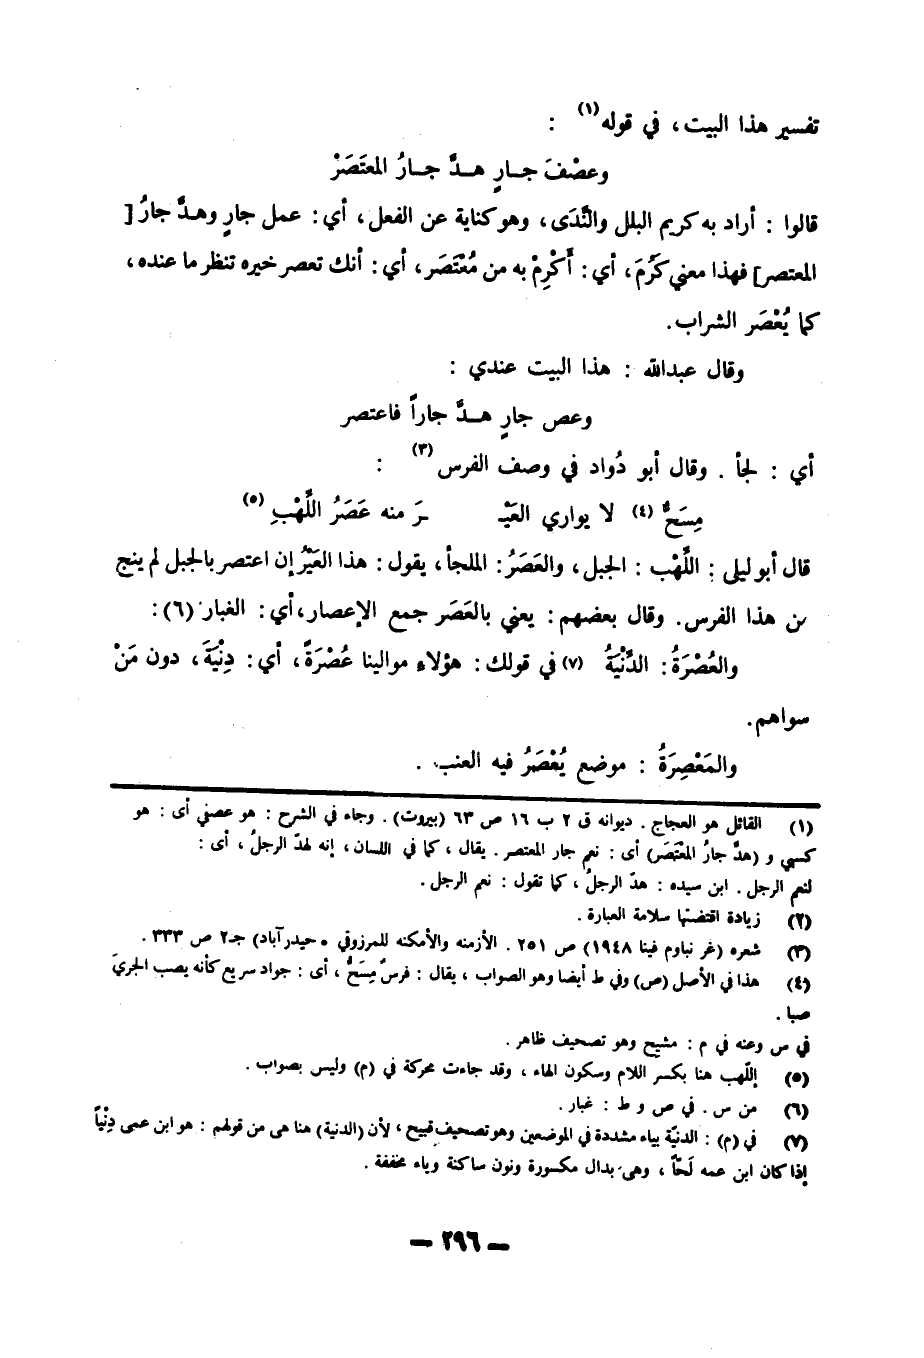 تفسير هذا البيت، في قوله(١) :
وعصْفَ جــارٍ هــدَّ جــارُ المعتَصَرْ
قالوا : أراد به كريم البلل والنَّدَى، وهو كناية عن الفعل، أي : عمل جارٍ وهـدَّ جارُ [
المعتصر] فهذا معني كَرُمَ، أي : أَكْرِمْ به من مُعْتَصَر، أي : أنك تعصر خيره تنظر ما عنده،
كما يُعْصَر الشراب.
وقال عبدالله : هذا البيت عندي :
وعص جارٍ هــدَّ جاراً فاعتصر
أي : لجأ . وقال أبو دُواد في وصف الفرس(٣) :
مِسَحٌّ (٤) لا يواري العَيْـ ـرَ منه عَصَرُ اللَّهْبِ (٥)
قال أبو ليلى : اللَّهْب : الجبل، والعَصَرُ : الملجأ، يقول : هذا العَيْرُ إن اعتصر بالجبل لم ينج
من هذا الفرس. وقال بعضهم : يعني بالعَصَر جمع الإعصار، أي : الغبار (٦) :
والعُصْرَةُ : الدِّنْيَةُ (٧) في قولك : هؤلاء موالينا عُصْرَةً، أي : دِنْيَةً، دون مَنْ
سواهم.
والمَعْصِرَةُ : موضع يُعْصَرُ فيه العنب .
(١) القائل هو العجاج . ديوانه ق ٢ ب ١٦ ص ٦٣ (بيروت) . وجاء في الشرح : هو عصني أى : هو
كسبي و (هدَّ جارُ المعْتَصَر) أى : نعم جار المعتصر . يقال ، كما في اللسان ، إنه لهدّ الرجلُ ، أى :
لنعم الرجل . ابن سيده : هدّ الرجلُ ، كما تقول : نعم الرجل .
(٢) زيادة اقتضتها سلامة العبارة .
(٣) شعره (غر نباوم فينا ١٩٤٨) ص ٢٥١ . الأزمنه والأمكنه للمرزوقي ، حيدر آباد) جـ٢ ص ٣٣٣ .
(٤) هذا في الأصل (ص) وفي ط أيضا وهو الصواب ، يقال : فرسٌ مِسَحٌّ ، أى : جواد سريع كأنه يصب الجريَ
صبا .
في س وعنه في م : مشيح وهو تصحيف ظاهر .
(٥) إللّهب هنا بكسر اللام وسكون الهاء ، وقد جاءت محركة في (م) وليس بصواب .
(٦) من س . في ص و ط : غبار .
(٧) في (م) : الدنيّة بياء مشددة في الموضعين وهو تصحيف قبيح ، لأن (الدنية) هنا هى من قولهم : هو ابن عمى دِنْياً
إذا كان ابن عمه لَحّاً ، وهى بدال مكسورة ونون ساكنة وياء مخففة .
— ٢٩٦ —